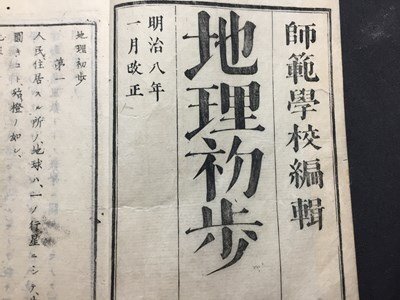 師範學校編輯
地理初步
明治八年
一月改正
地理初步
第一
人民住居スル所ノ地球ハ、一ツノ行星ニシテ、
圓キコト橙ノ如シ、